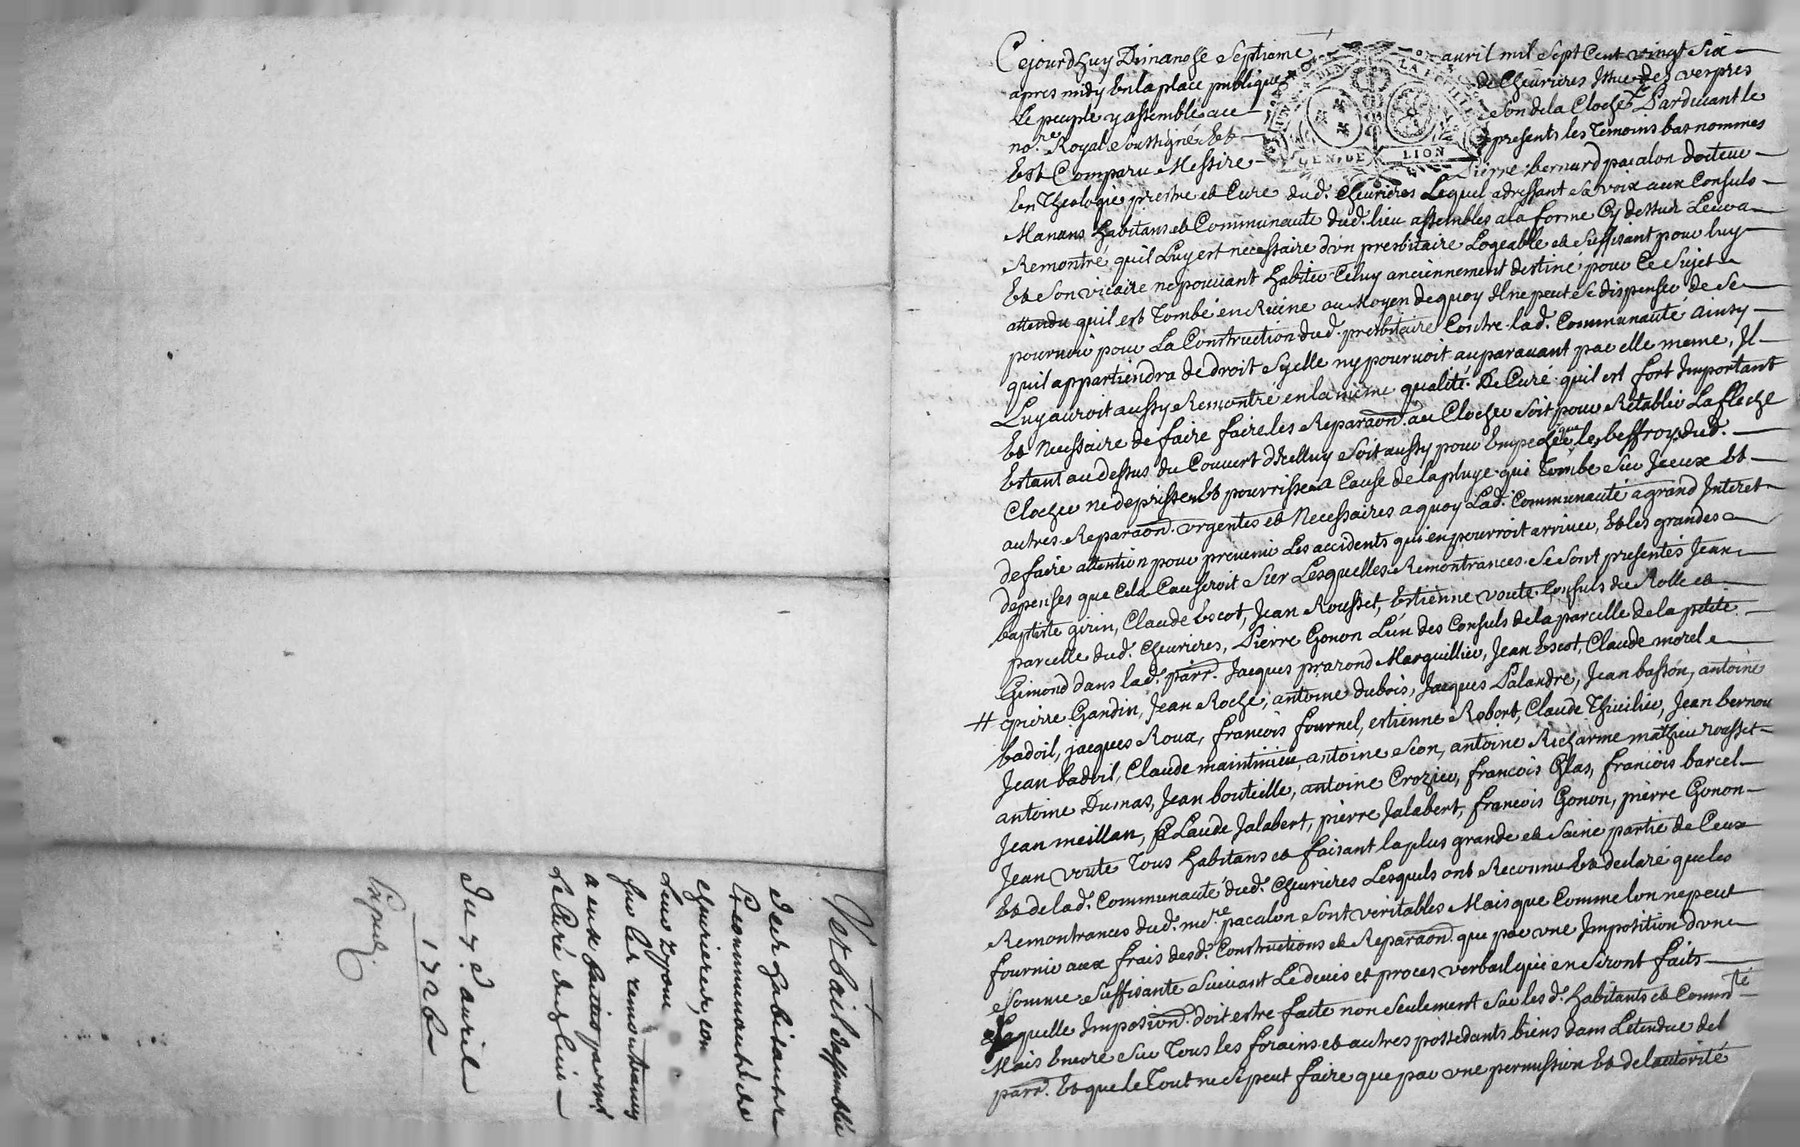 Cejourdhuy Dimanche Septieme avril mil Sept Cent vingt Six
apres midy En la place publique de Cheurieres Issue des verpres
Le peuple y assemblé au Son de la Cloche Pardeuant le
no.re Royal Soussigné Et presents les Temoins bas nommes
Est Comparu Messire Pierre bernard pacalon docteur
En Theologie prestre et Curé dud. Cheurieres Lequel adressant Sa voix aux Consuls
Manans habitans et Communauté dud. lieu assembles a la forme Cy dessus Leur a
Remontré quil Luy est necessaire d'un presbitaire Logeable et Suffisant pour luy
Et Son vicaire ne pouuant habiter Celuy anciennement destiné pour Ce Sujet
attendu quil est Tombé en Ruine au Moyen de quoy Il ne peut Se dispenser de Se
pouruoir pour La Construction dud. presbitaire Contre lad. Communauté ainsy
quil appartiendra de droit Sy elle ny pouruoit auparauant par elle meme, Il
Luy auroit aussy Remontré en la meme qualité De Curé quil est fort Important
Et Necessaire de faire faire les Reparaon. au Clocher Soit pour Retablir La fleche
Estant au dessus du Couuert d'Icelluy Soit aussy pour Empecher que le beffroy dud.
Clocher ne deprisse Et pourrisse a Cause de la pluye qui Tombe Sur Iceux Et
autres Reparaon. urgentes et Necessaires a quoy Lad. Communauté a grand Interet
de faire attention pour preuenir Les accidents qui en pourroit arriuer, Et les grandes
depenses que Cela Causeroit Sur Lesquelles Remontrances Se Sont presentés Jean
baptiste girin, Claude Escot, Jean Rousset, Estienne voute Consuls du Rolle et
parcelle dud. Cheurieres, Pierre Gonon L'un des Consuls de la parcelle de la petite
Gimond dans lad. parr. Jacques prazond Marguillier, Jean Escot, Claude morel
# pierre Gandin, Jean Roche, antoine dubois, Jacques Palandre, Jean basson, antoine
badoil, jacques Roux, francois fournel, estienne Robert, Claude Thiuilier, Jean bernou
Jean badoil, Claude maintinieu, antoine Sion, antoine Richarme mathieu rousset
antoine Dumas, Jean bouteille, antoine Crozier, francois Glas, francois barcel
Jean meillan, Claude Jalabert, pierre Jalabert, francois Gonon, pierre Gonon
Jean voute Tous habitans et faisant la plus grande et Saine partie de Ceux
Et de lad. Communauté dud. Cheurieres Lesquels ont Reconnu Et declaré que les
Remontrances dud. m.re pacalon Sont veritables Mais que Comme lon ne peut
fournir aux frais desd. Constructions et Reparaon. que par une Imposition d'une
Somme Suffisante Suiuant Le deuis et proces verbail qui en Seront faits
Laquelle Imposion. doit estre faite non Seulement Sur les d. habitants et Commté
Mais Encore Sur Tous les forains et autres possedants biens dans Letendue de l
parr. Et que le Tout ne Se peut faire que par une permission Et de lautorité
Verbail dassemblée
des habitants
Et communauté de
cheurieres, en
Lionnois
Sur les remontrances
a eux faittes par m.re
Le Curé dud lieu
Du 7e auril
1726
Expedié
GEN. DE LION